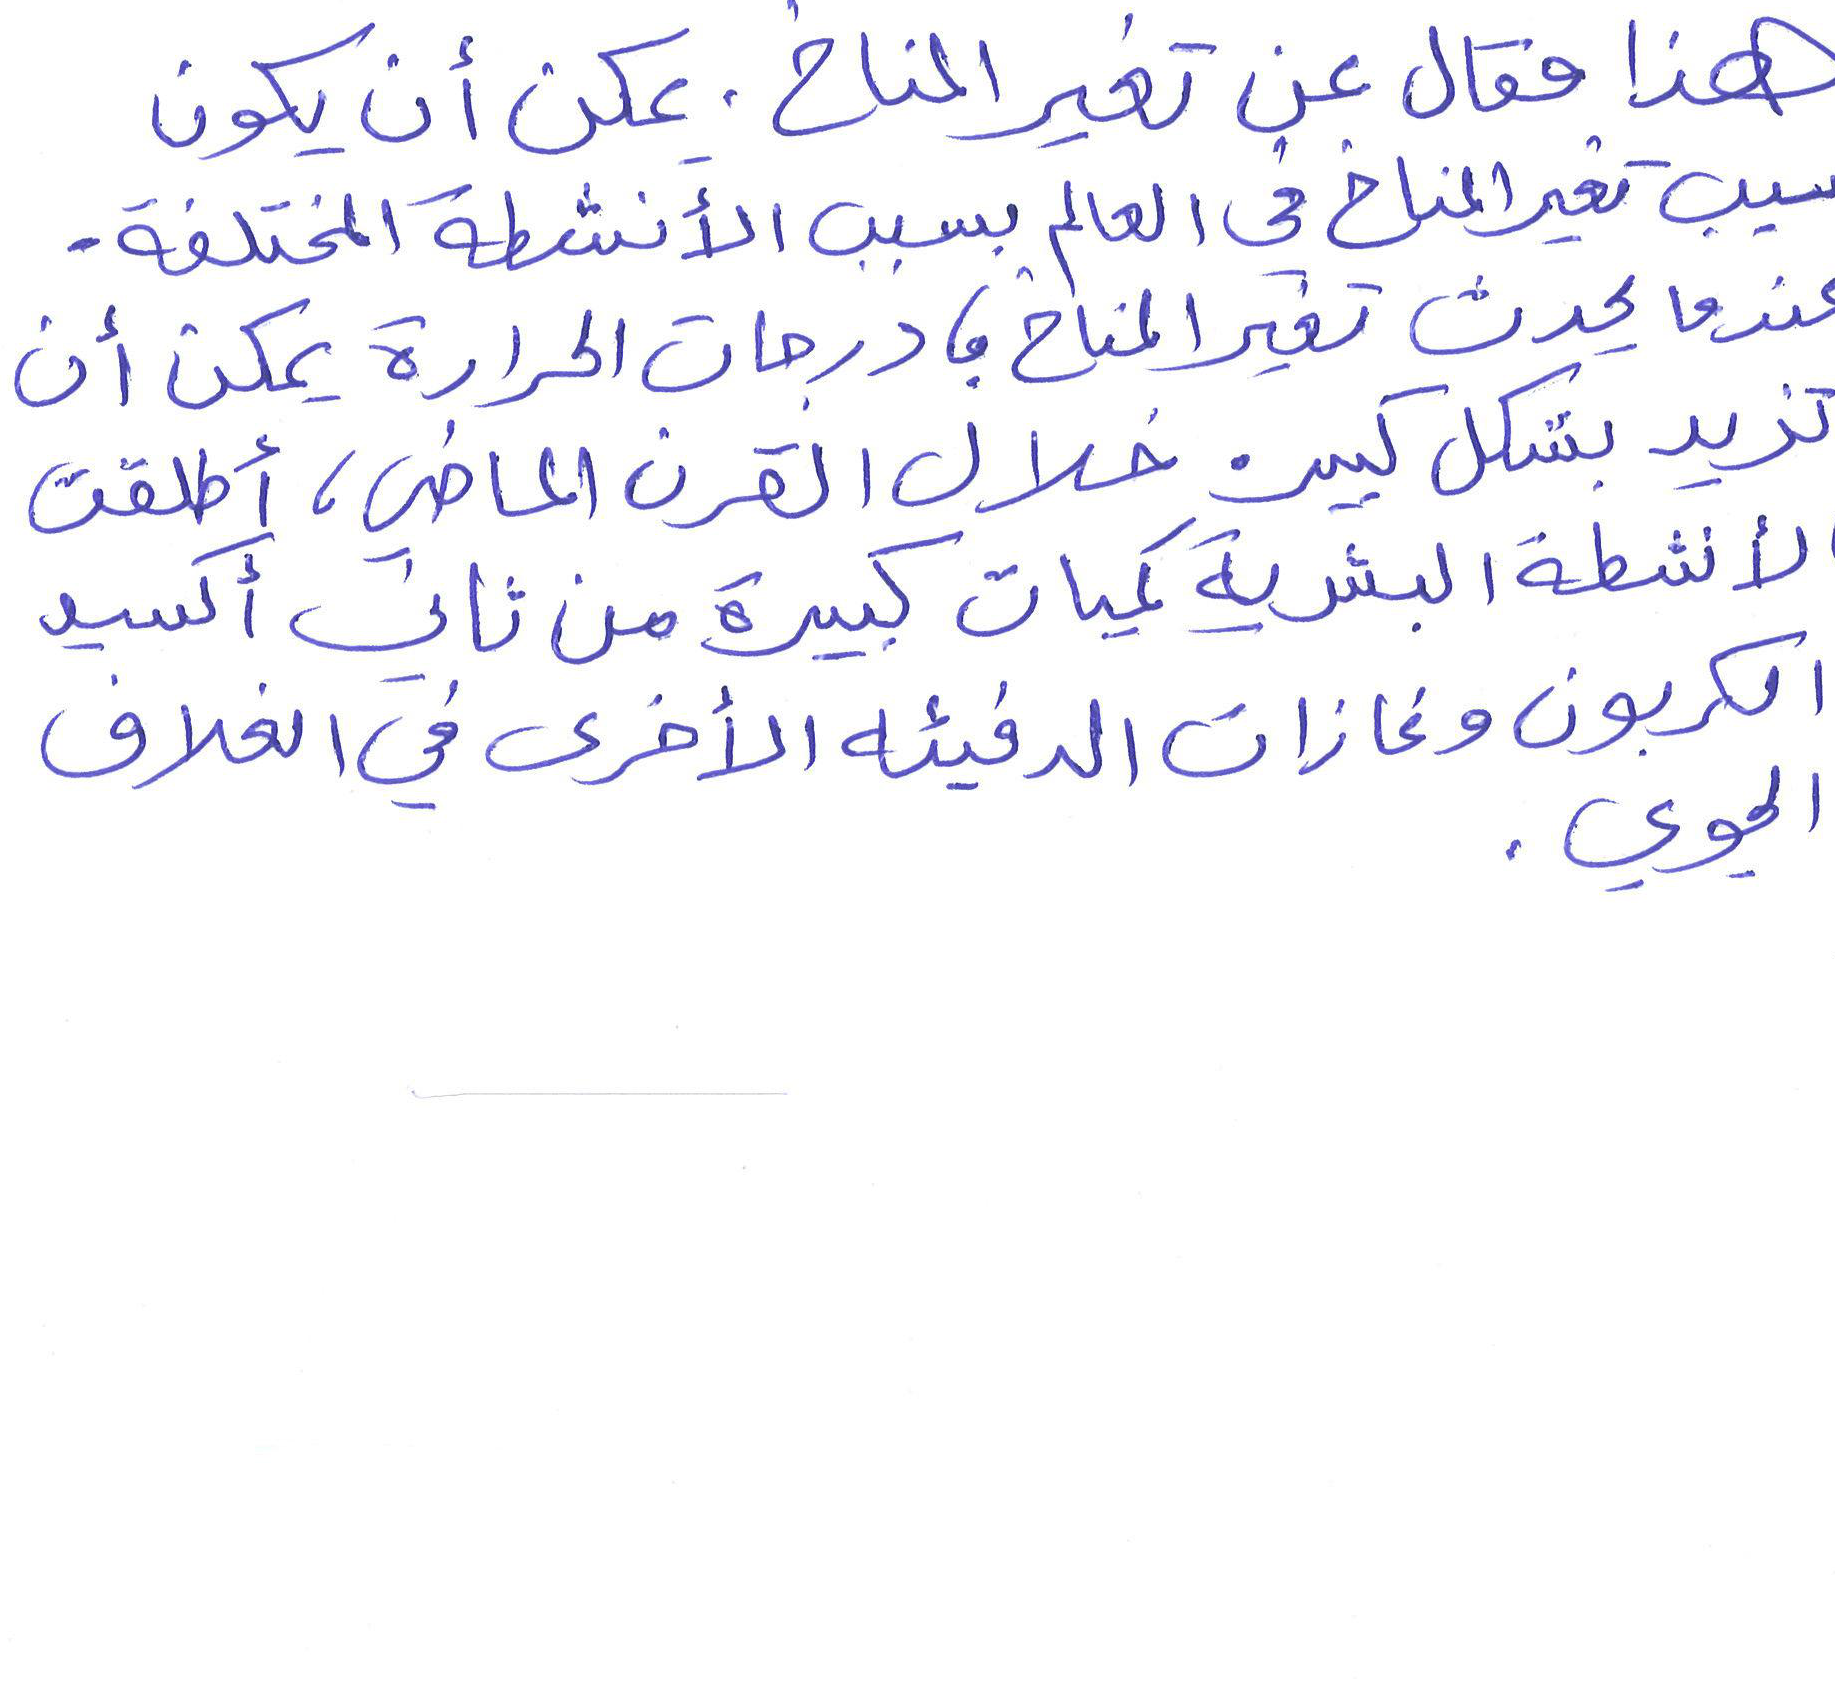 هذا مقال عن تغير المناخ . يمكن أن يكون
سبب تغير المناخ في العالم بسبب الأنشطة المختلفة .
عندما يحدث تغير المناخ ، درجات الحرارة يمكن أن
تزيد بشكل كبير . خلال القرن الماضي ، أطلقت
الأنشطة البشرية كميات كبيرة من ثاني أكسيد
الكربون وغازات الدفيئه الأخرى في الغلاف
الجوي .